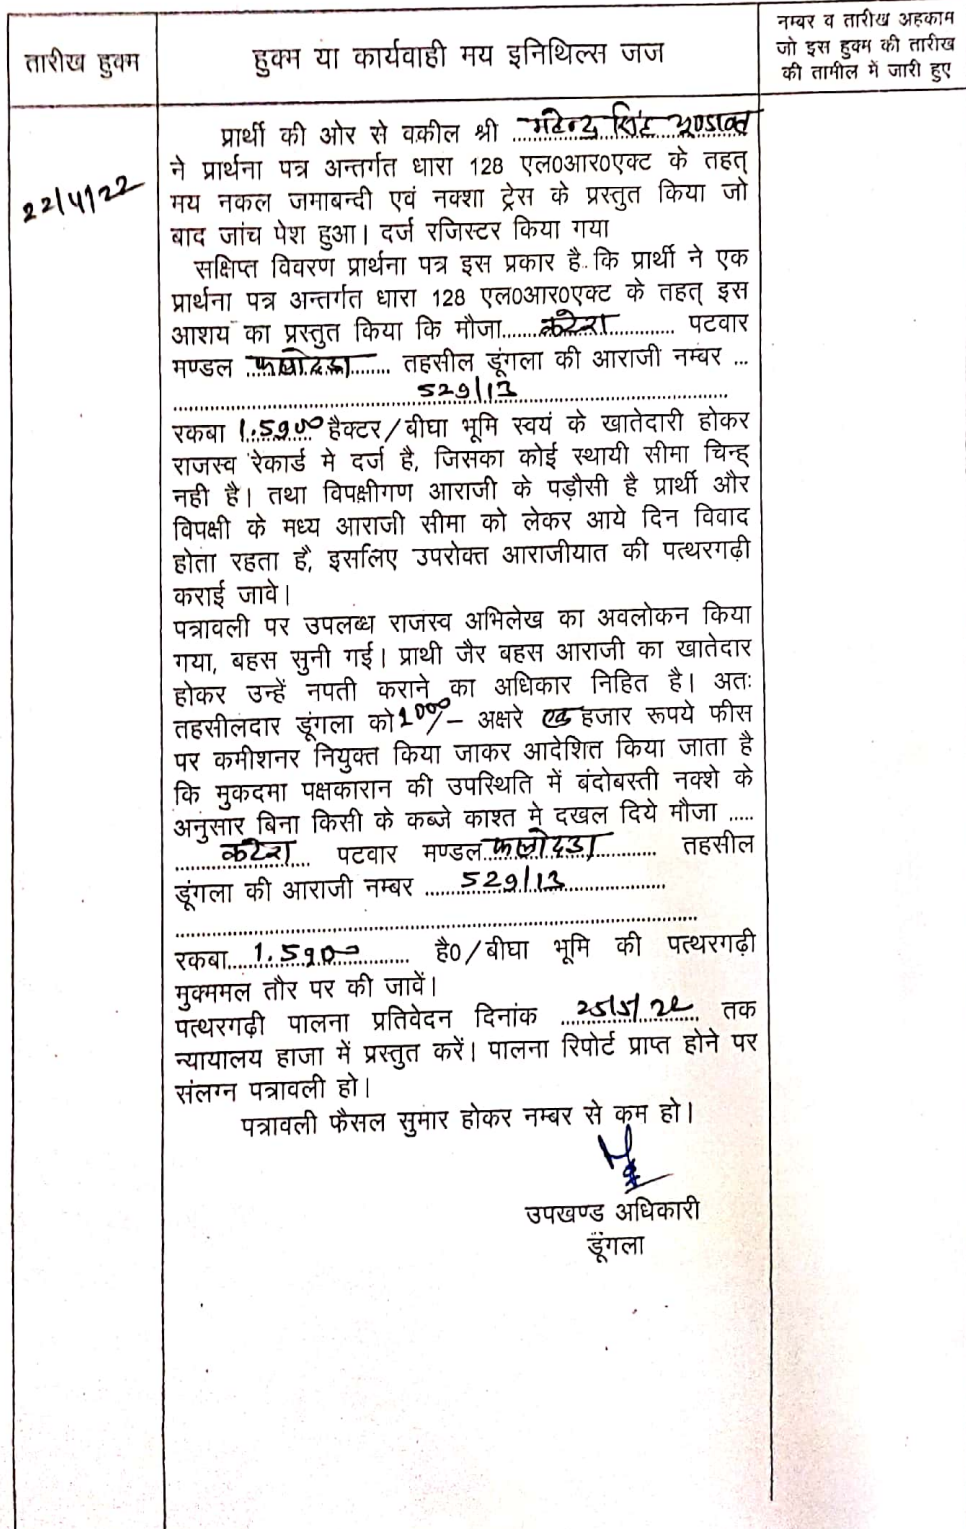 तारीख हुक्म
हुक्म या कार्यवाही मय इनिथिल्स जज
नम्बर व तारीख अहकाम
जो इस हुक्म की तारीख
की तामील में जारी हुए
22/4/22
प्रार्थी की ओर से वकील श्री ................ सिंह
ने प्रार्थना पत्र अन्तर्गत धारा 128 एल0आर0एक्ट के तहत्
मय नकल जमाबन्दी एवं नक्शा ट्रेस के प्रस्तुत किया जो
बाद जांच पेश हुआ। दर्ज रजिस्टर किया गया
सक्षिप्त विवरण प्रार्थना पत्र इस प्रकार है. कि प्रार्थी ने एक
प्रार्थना पत्र अन्तर्गत धारा 128 एल0आर0एक्ट के तहत् इस
आशय का प्रस्तुत किया कि मौजा............ पटवार
मण्डल ............ तहसील डूंगला की आराजी नम्बर ...
529/13
रकबा 1.5900 हैक्टर/बीघा भूमि स्वयं के खातेदारी होकर
राजस्व रेकार्ड मे दर्ज है, जिसका कोई स्थायी सीमा चिन्ह्
नही है। तथा विपक्षीगण आराजी के पड़ौसी है प्रार्थी और
विपक्षी के मध्य आराजी सीमा को लेकर आये दिन विवाद
होता रहता है, इसलिए उपरोक्त आराजीयात की पत्थरगढ़ी
कराई जावे।
पत्रावली पर उपलब्ध राजस्व अभिलेख का अवलोकन किया
गया, बहस सुनी गई। प्राथी जैर बहस आराजी का खातेदार
होकर उन्हें नपती कराने का अधिकार निहित है। अतः
तहसीलदार डूंगला को 1000/- अक्षरे एक हजार रूपये फीस
पर कमीशनर नियुक्त किया जाकर आदेशित किया जाता है
कि मुकदमा पक्षकारान की उपस्थिति में बंदोबस्ती नक्शे के
अनुसार बिना किसी के कब्जे काश्त मे दखल दिये मौजा .....
............ पटवार मण्डल............ तहसील
डूंगला की आराजी नम्बर ....529/13............
रकबा....1.5900........ है0/बीघा भूमि की पत्थरगढ़ी
मुक्ममल तौर पर की जावें।
पत्थरगढ़ी पालना प्रतिवेदन दिनांक ..25/5/22.. तक
न्यायालय हाजा में प्रस्तुत करें। पालना रिपोर्ट प्राप्त होने पर
संलग्न पत्रावली हो।
पत्रावली फैसल सुमार होकर नम्बर से कम हो।
उपखण्ड अधिकारी
डूंगला